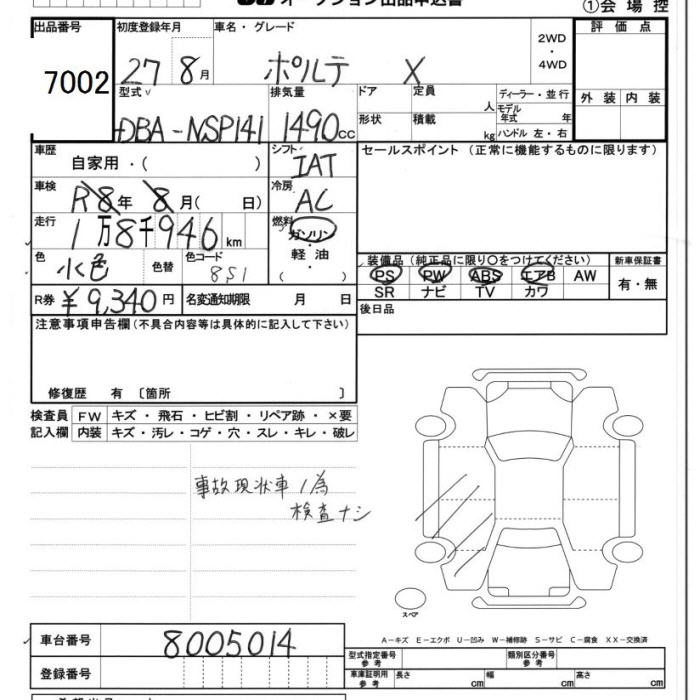 オークション出品申込書
①会場控
出品番号 初度登録年月 車名・グレード 評価点
7002 27 8月 ポルテ X 2WD・4WD
型式 排気量 ドア 定員 人 ディーラー・並行 外装 内装
DBA-NSP141 1490cc 形状 積載 kg モデル年式 年
ハンドル 左・右
車歴 自家用・( ) シフト IAT セールスポイント (正常に機能するものに限ります)
車検 R8年 8月( 日) 冷房 AC
走行 1万8千946km 燃料 ガソリン・軽油・( )
色 水色 色替 色コード 8S1
装備品 (純正品に限り○をつけてください) 新車保証書
PS PW ABS エアB AW 有・無
SR ナビ TV カワ
R券 ¥9,340円 名変通知期限 月 日 後日品
注意事項申告欄(不具合内容等は具体的に記入して下さい)
修復歴 有 〔箇所 〕
検査員 FW キズ・飛石・ヒビ割・リペア跡・×要
記入欄 内装 キズ・汚レ・コゲ・穴・スレ・キレ・破レ
事故現状車ノ為
検査ナシ
スペア
A-キズ E-エクボ U-凹み W-補修跡 S-サビ C-腐食 XX-交換済
車台番号 8005014 型式指定番号 参考 類別区分番号 参考
登録番号 車庫証明用 参考 長さ cm 幅 cm 高さ cm